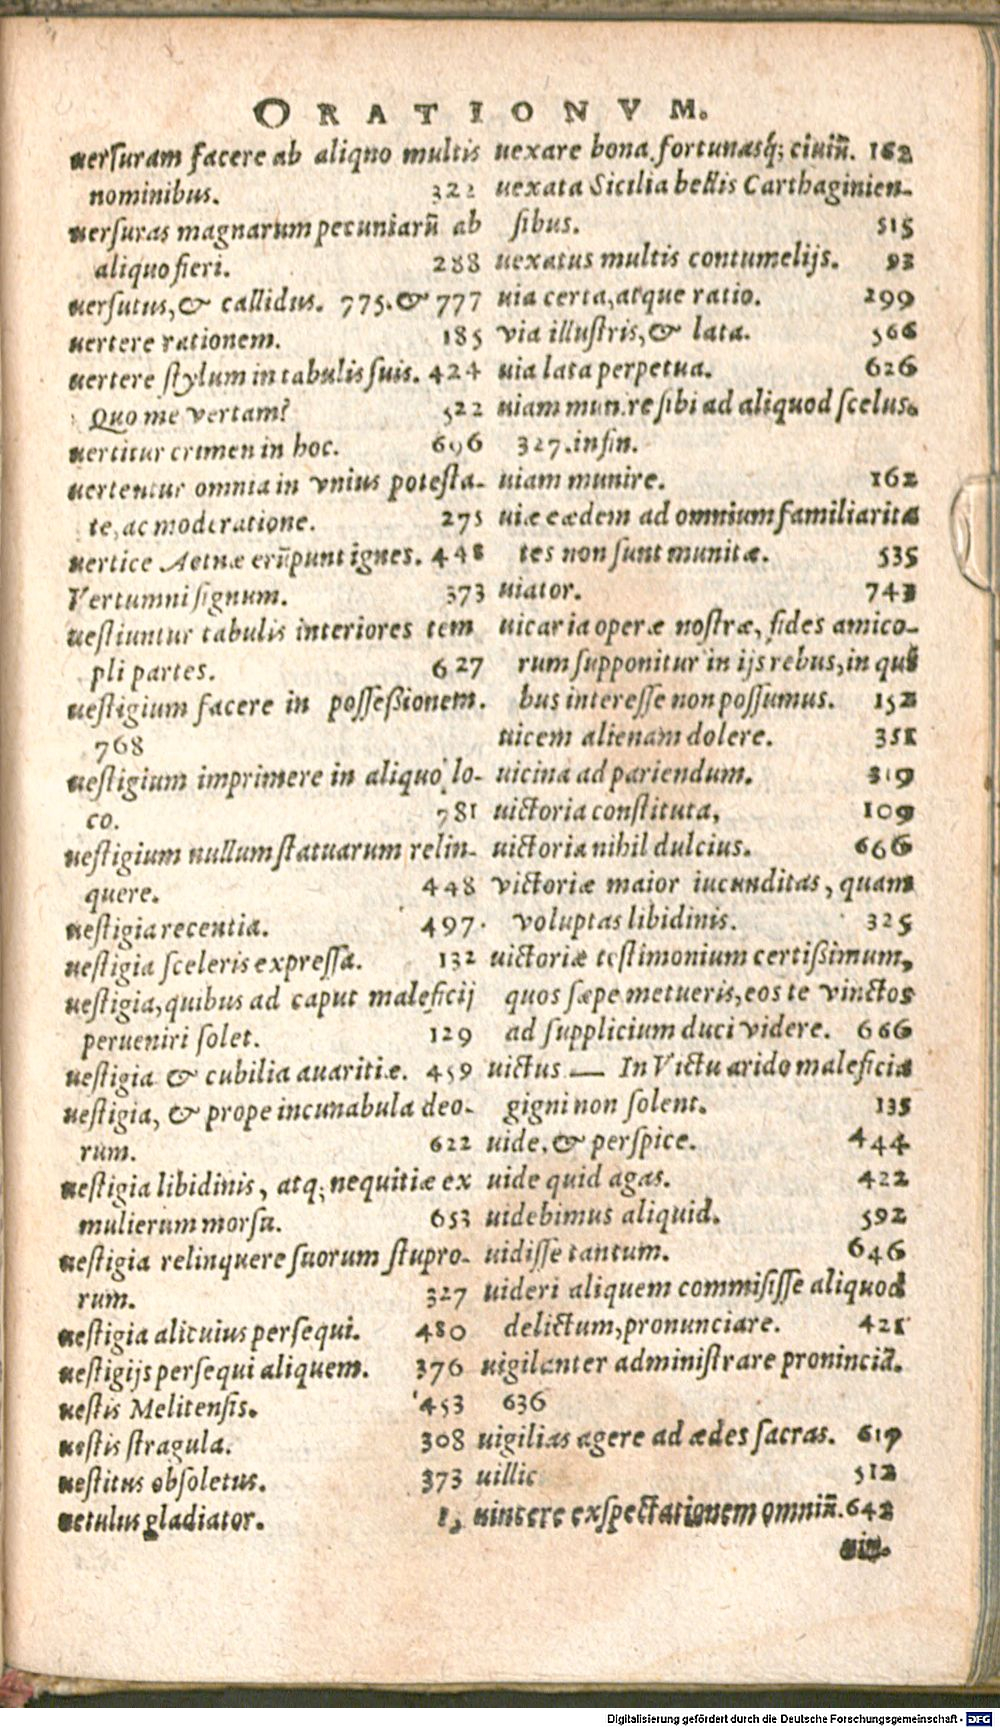 ORATIONVM.
uersuram facere ab aliquo multis
nominibus. 322
uersuras magnarum pecuniarũ ab
aliquo fieri. 288
uersutus, & callidus. 775. & 777
uertere rationem. 185
uertere stylum in tabulis suis. 424
Quo me vertam? 522
uertitur crimen in hoc. 696
uertentur omnia in vnius potesta-
te, ac moderatione. 275
uertice Aetnæ erũpunt ignes. 448
Vertumni signum. 373
uestiuntur tabulis interiores tem
pli partes. 627
uestigium facere in possessionem.
768
uestigium imprimere in aliquo lo-
co. 781
uestigium nullum statuarum relin-
quere. 448
uestigia recentia. 497.
uestigia sceleris expressa. 132
uestigia, quibus ad caput maleficij
perueniri solet. 129
uestigia & cubilia auaritiæ. 459
uestigia, & prope incunabula deo-
rum. 622
uestigia libidinis, atq; nequitiæ ex
mulierum morsu. 653
uestigia relinquere suorum stupro-
rum. 327
uestigia alicuius persequi. 480
uestigijs persequi aliquem. 376
uestis Melitensis. 453
uestis stragula. 308
uestitus obsoletus. 373
uetulus gladiator.
uexare bona, fortunasq́; ciuiũ. 162
uexata Sicilia bellis Carthaginien-
sibus. 515
uexatus multis contumelijs. 93
uia certa, atque ratio. 299
via illustris, & lata. 566
uia lata perpetua. 626
uiam munire sibi ad aliquod scelus.
327. in fin.
uiam munire. 162
uiæ eædem ad omnium familiarita
tes non sunt munitæ. 535
uiator. 743
uicaria operæ nostræ, fides amico-
rum supponitur in ijs rebus, in qui
bus interesse non possumus. 152
uicem alienam dolere. 351
uicina ad pariendum. 319
uictoria constituta, 109
uictoria nihil dulcius. 666
victoriæ maior iucunditas, quam
voluptas libidinis. 325
uictoriæ testimonium certissimum,
quos sæpe metueris, eos te vinctos
ad supplicium duci videre. 666
uictus — In Victu arido maleficia
gigni non solent. 135
uide, & perspice. 444
uide quid agas. 422
uidebimus aliquid. 592
uidisse tantum. 646
uideri aliquem commisisse aliquod
delictum, pronunciare. 421
uigilanter administrare prouinciã.
636
uigilias agere ad ædes sacras. 619
uillic 512
uincere exspectationem omniũ. 642
uim.
Digitalisierung gefördert durch die Deutsche Forschungsgemeinschaft - DFG